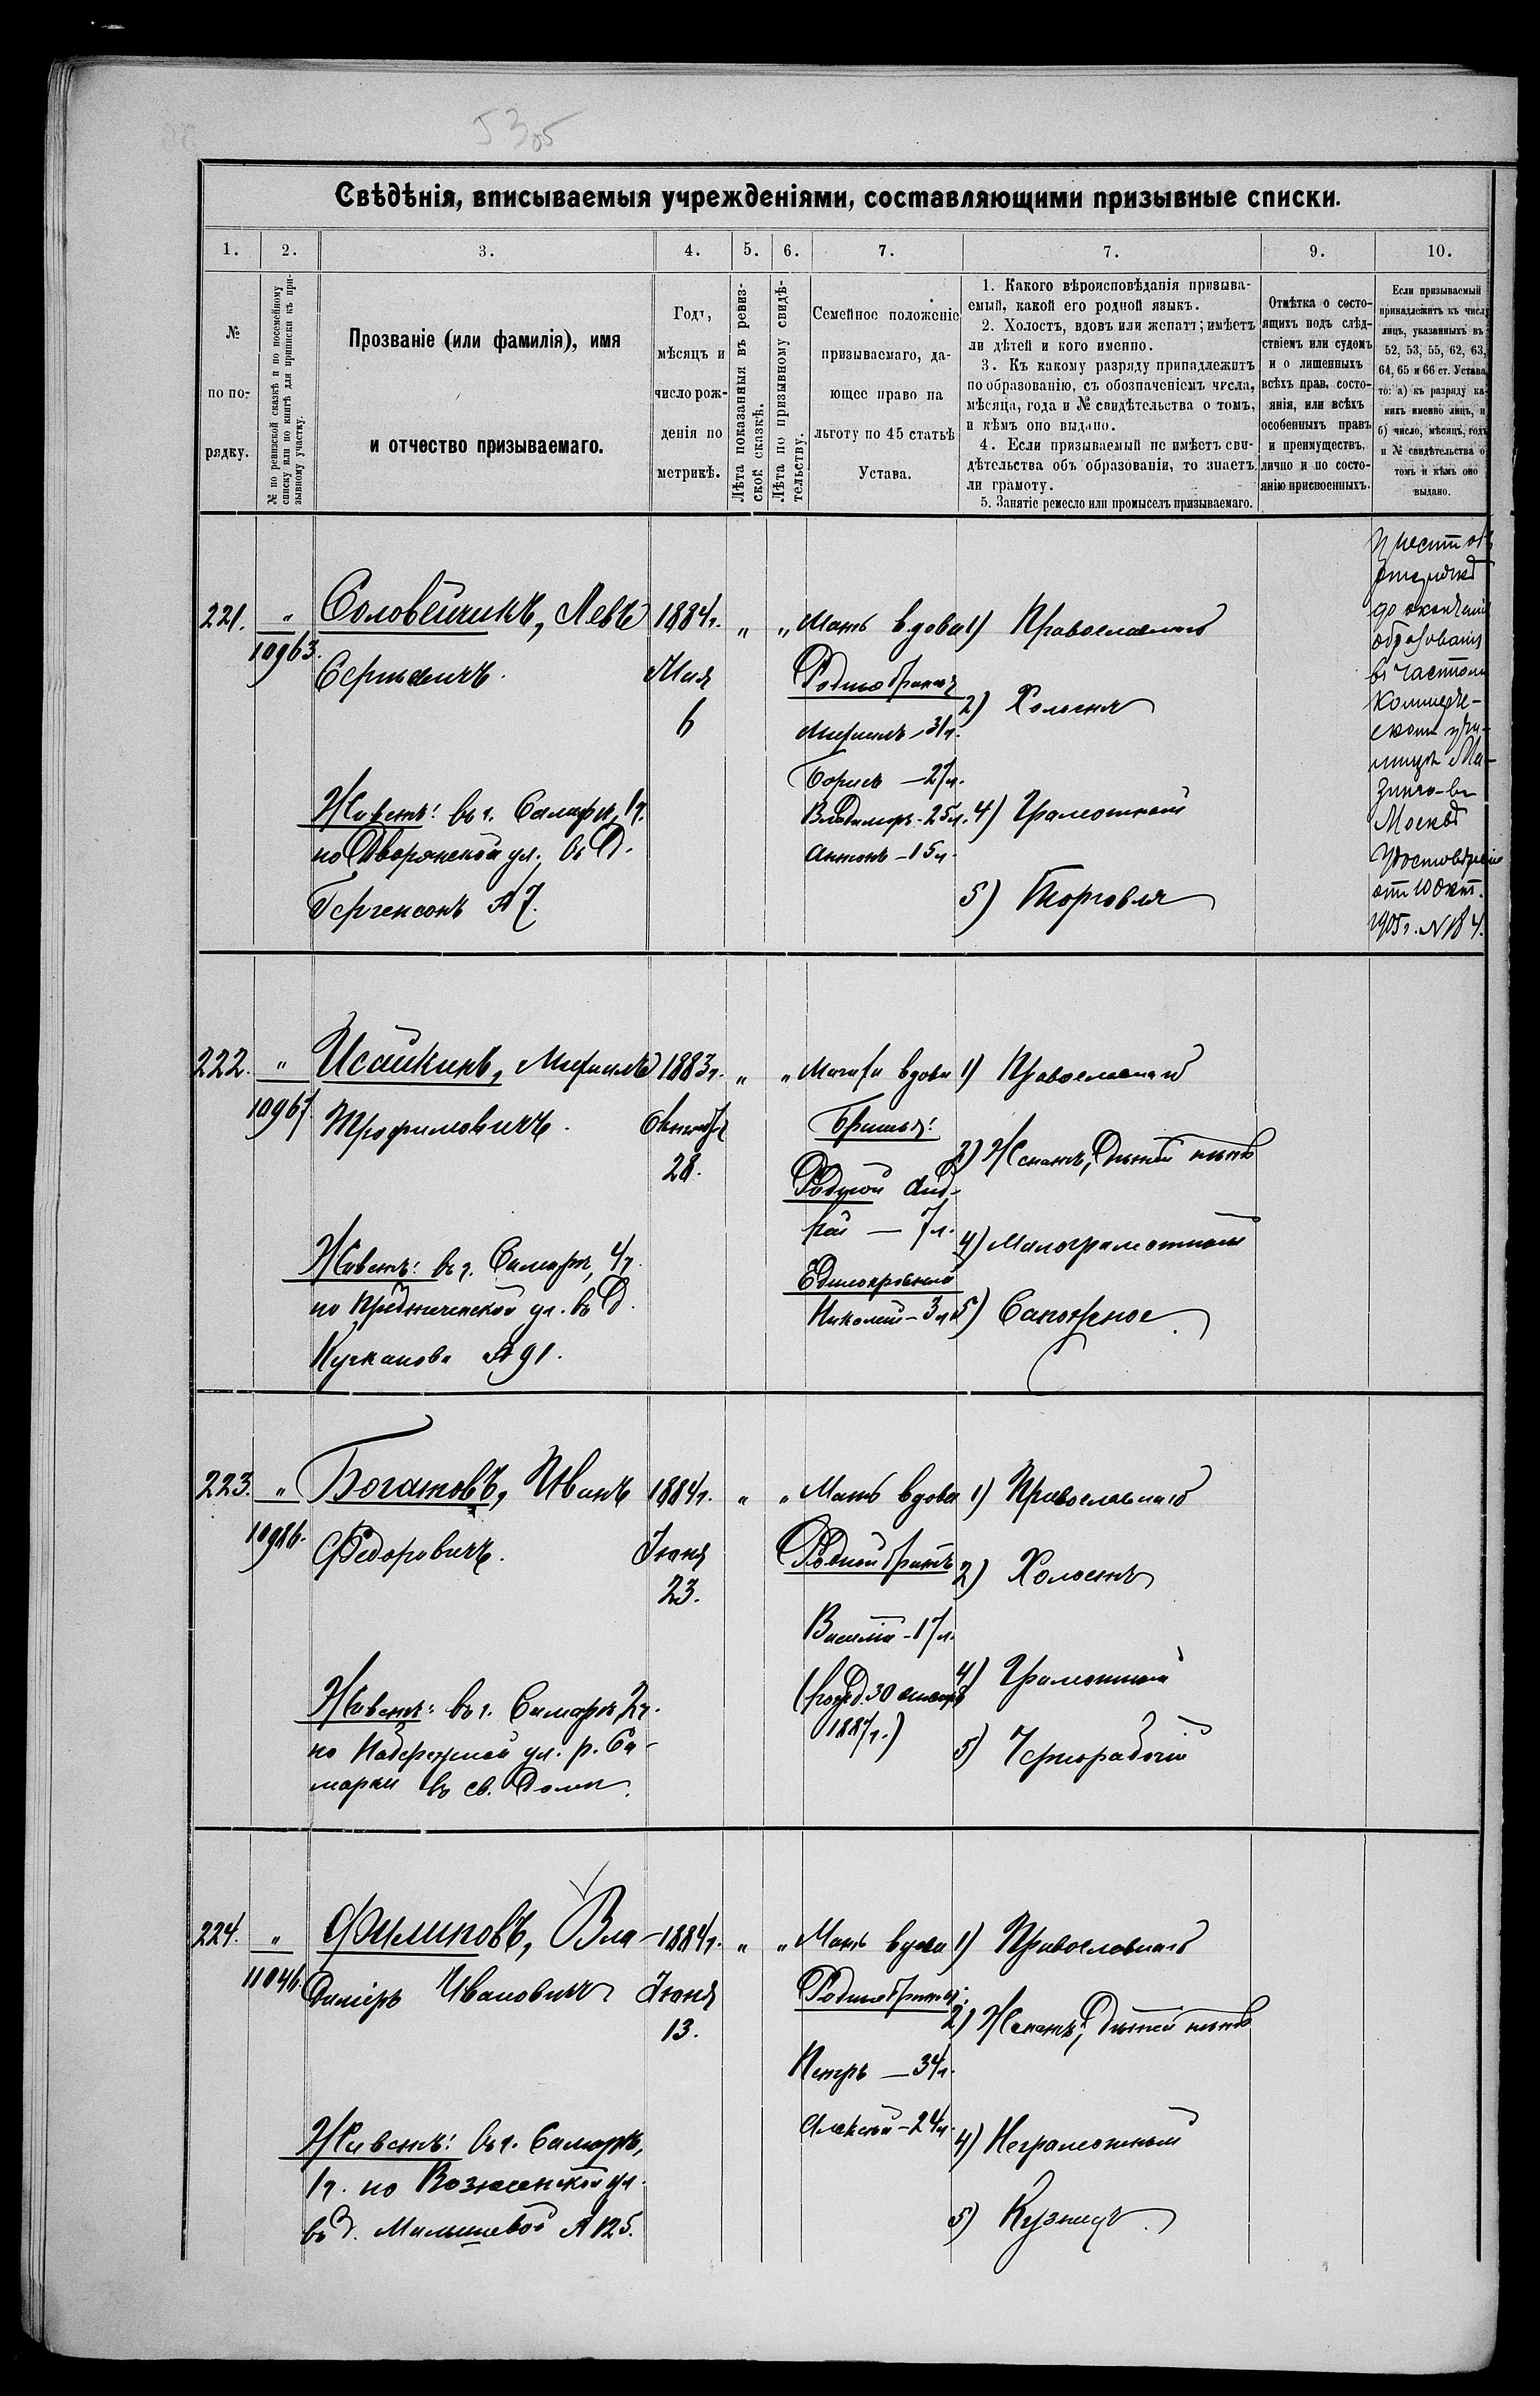 5305
Свѣдѣнія, вписываемыя учрежденіями, составляющими призывные списки.
1. 2. 3. 4. 5. 6. 7. 7. 9. 10.
№ по по-рядку.
№ по ревизской сказкѣ и по посемейному списку или по книгѣ для приписки къ при-зывному участку.
Прозваніе (или фамилія), имя
и отчество призываемаго.
Годъ,
мѣсяцъ и
число рож-
денія по
метрикѣ.
Лѣта показанныя въ ревиз-
ской сказкѣ.
Лѣта по призывному свидѣ-
тельству.
Семейное положеніе
призываемаго, да-
ющее право на
льготу по 45 статьѣ
Устава.
1. Какого вѣроисповѣданія призыва-
емый, какой его родной языкъ.
2. Холостъ, вдовъ или женатъ; имѣетъ
ли дѣтей и кого именно.
3. Къ какому разряду принадлежитъ
по образованію, съ обозначеніемъ числа,
мѣсяца, года и № свидѣтельства о томъ,
и кѣмъ оно выдано.
4. Если призываемый не имѣетъ сви-
дѣтельства объ образованіи, то знаетъ
ли грамоту.
5. Занятіе ремесло или промыселъ призываемаго.
Отмѣтка о состо-
ящихъ подъ слѣд-
ствіемъ или судомъ
и о лишенныхъ
всѣхъ прав. состо-
янія, или всѣхъ
особенныхъ правъ
и преимуществъ,
лично и по состо-
янію присвоенныхъ.
Если призываемый
принадлежитъ къ числу
лицъ, указанныхъ въ
52, 53, 55, 62, 63,
64, 65 и 66 ст. Устава,
то: а) къ разряду ка-
кихъ именно лицъ, и
б) число, мѣсяцъ, годъ
и № свидѣтельства о
томъ и кѣмъ оно
выдано.
221. " Соловейчикъ, Левъ 1884г. " " Мать вдова 1) Православнаго
10963. Сергѣевичъ. Мая 6
Родные братья
Михаилъ - 31г.
Борисъ - 27л.
Владиміръ - 25л.
Антонъ - 15л.
2) Холостъ
4) Грамотный
5) Торговля
Живетъ: въ г. Самарѣ, 1ч.
по Дворянской ул., въ д.
Гергенсонъ № 7.
отсрочка
до окончанія
образованія
въ частномъ
Коммерче-
скомъ учи-
лищѣ Ма-
зинга въ
Москвѣ
Удостовѣреніе
отъ 10 Окт.
1905г. № 184.
222. " Исайкинъ, Михаилъ 1883г. " " Мачиха вдова 1) Православнаго
10967. Трофимовичъ. Октября 28.
Братья:
Родной Анд-
рей - 7л.
Единокровный
Николай - 3л.
2) Женатъ, дѣтей нѣтъ
4) Малограмотный
5) Сапожное
Живетъ: въ г. Самарѣ, 4ч.
по Предтеченской ул. въ д.
Курканова № 91.
223. " Богатовъ, Иванъ 1884г. " " Мать вдова 1) Православнаго
10986. Федоровичъ. Іюня 23.
Родной братъ
Василій - 17л.
(рожд. 30
1887г.)
2) Холостъ
4) Грамотный
5) Чернорабочій
Живетъ: въ г. Самарѣ, 2ч.
по Набережной ул. р. Са-
марки въ св. домѣ.
224. " Филиповъ, Вла- 1884г. " " Мать вдова 1) Православнаго
11046. диміръ Ивановичъ Іюня 13.
Родные братья:
Петръ - 34г.
Алексѣй - 24г.
2) Женатъ, дѣтей нѣтъ
4) Неграмотный
5) Кузнецъ.
Живетъ: въ г. Самарѣ,
1ч. по Вознесенской ул.
въ д. Малышевой № 125.